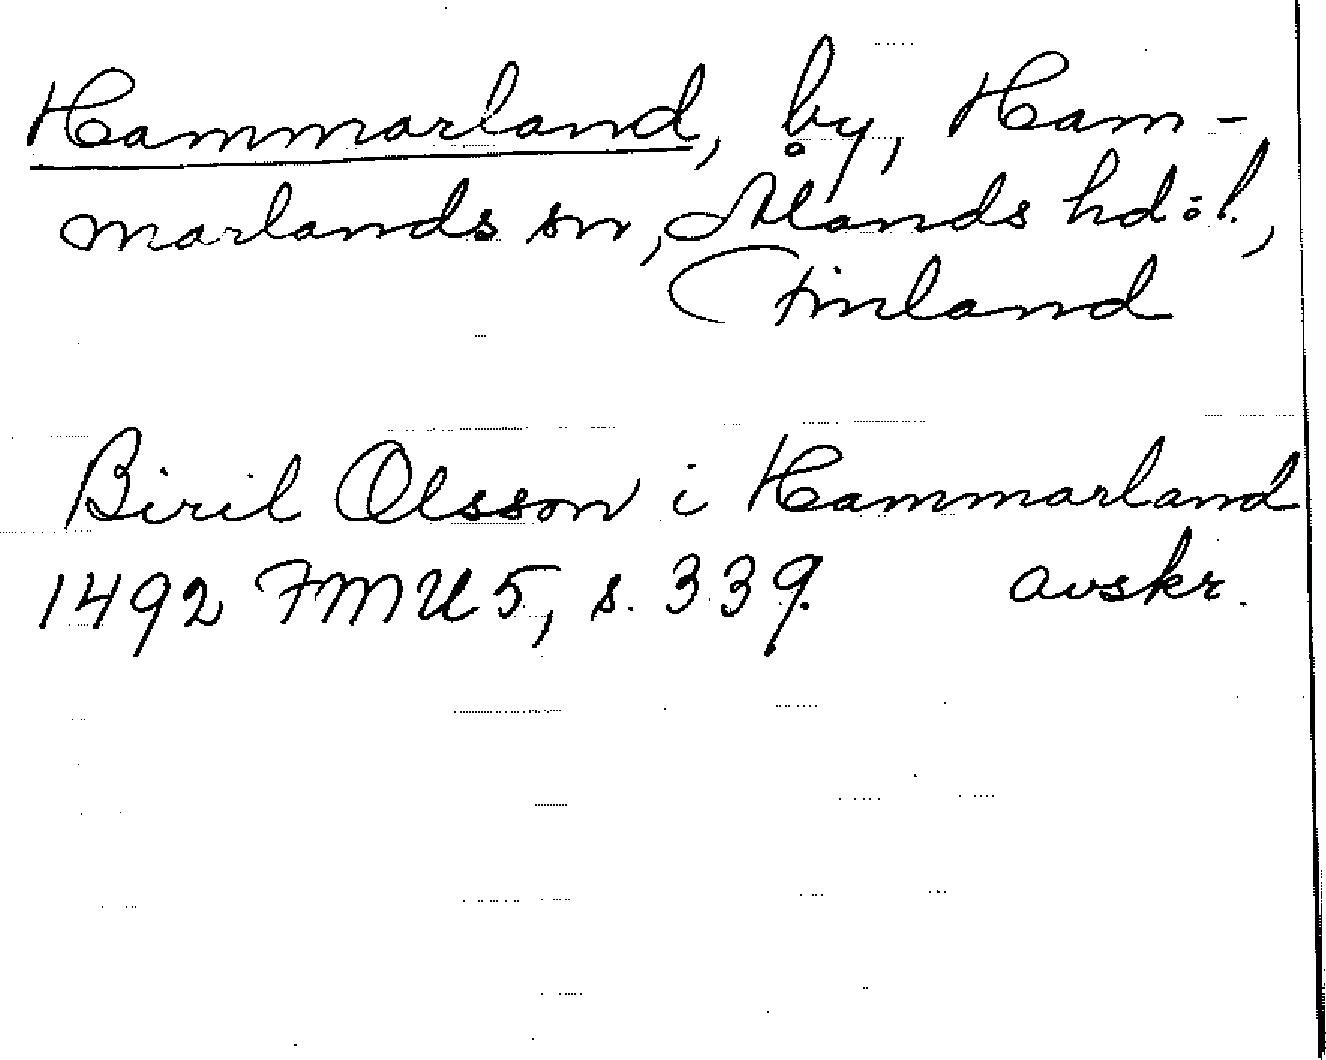 Hammarland, by, Ham-
marlands sn, Ålands hd:l.,
Finland
Biril Olsson i Hammarland
1492 FMU 5, s. 339. avskr.